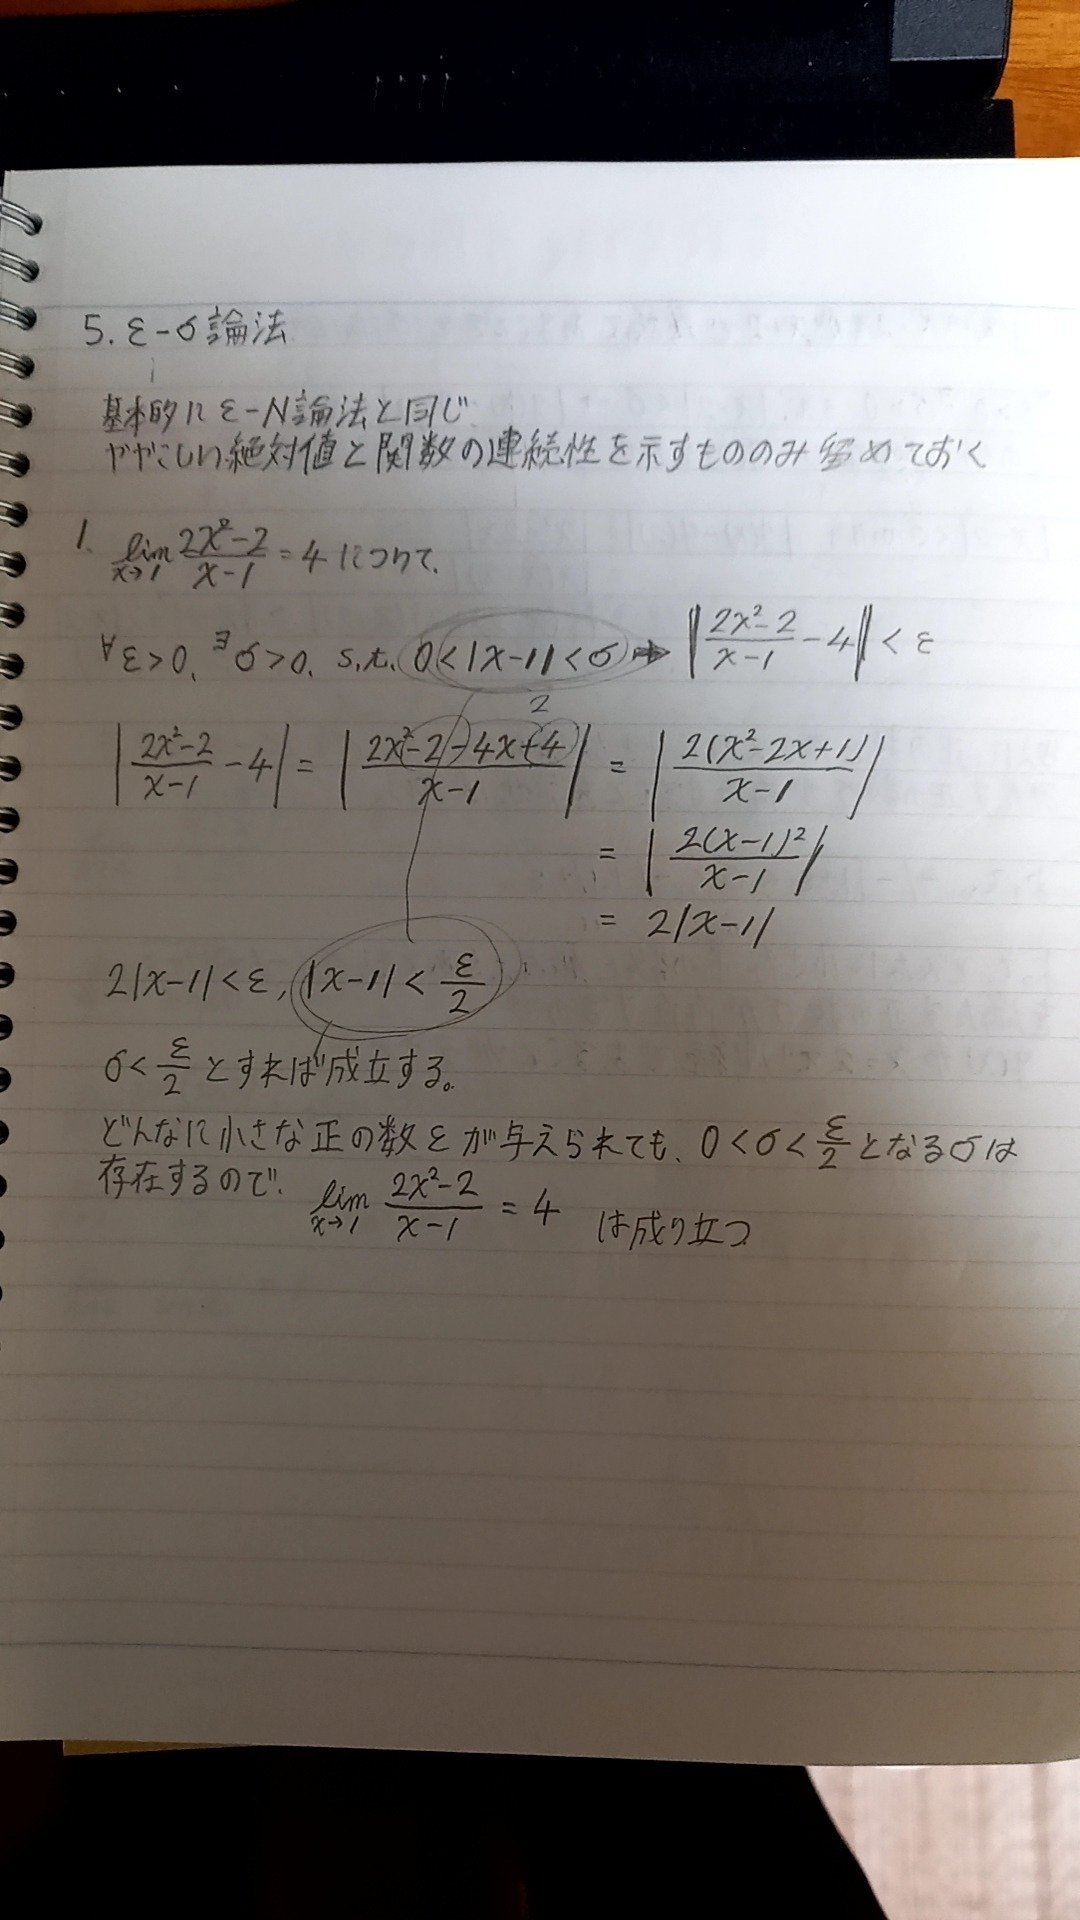 5. ε-σ論法
基本的にε-N論法と同じ
ややこしい絶対値と関数の連続性を示すもののみ留めておく
1. lim x→1 (2x²-2)/(x-1) = 4 について.
∀ε>0, ∃σ>0, s.t. 0<|x-1|<σ ⇒ |(2x²-2)/(x-1) - 4| < ε
2
|(2x²-2)/(x-1) - 4| = |(2x²-2-4x+4)/(x-1)| = |2(x²-2x+1)/(x-1)|
= |2(x-1)²/(x-1)|
= 2|x-1|
2|x-1|<ε, |x-1|<ε/2
σ<ε/2 とすれば成立する。
どんなに小さな正の数εが与えられても、0<σ<ε/2となるσは
存在するので、
lim x→1 (2x²-2)/(x-1) = 4 は成り立つ